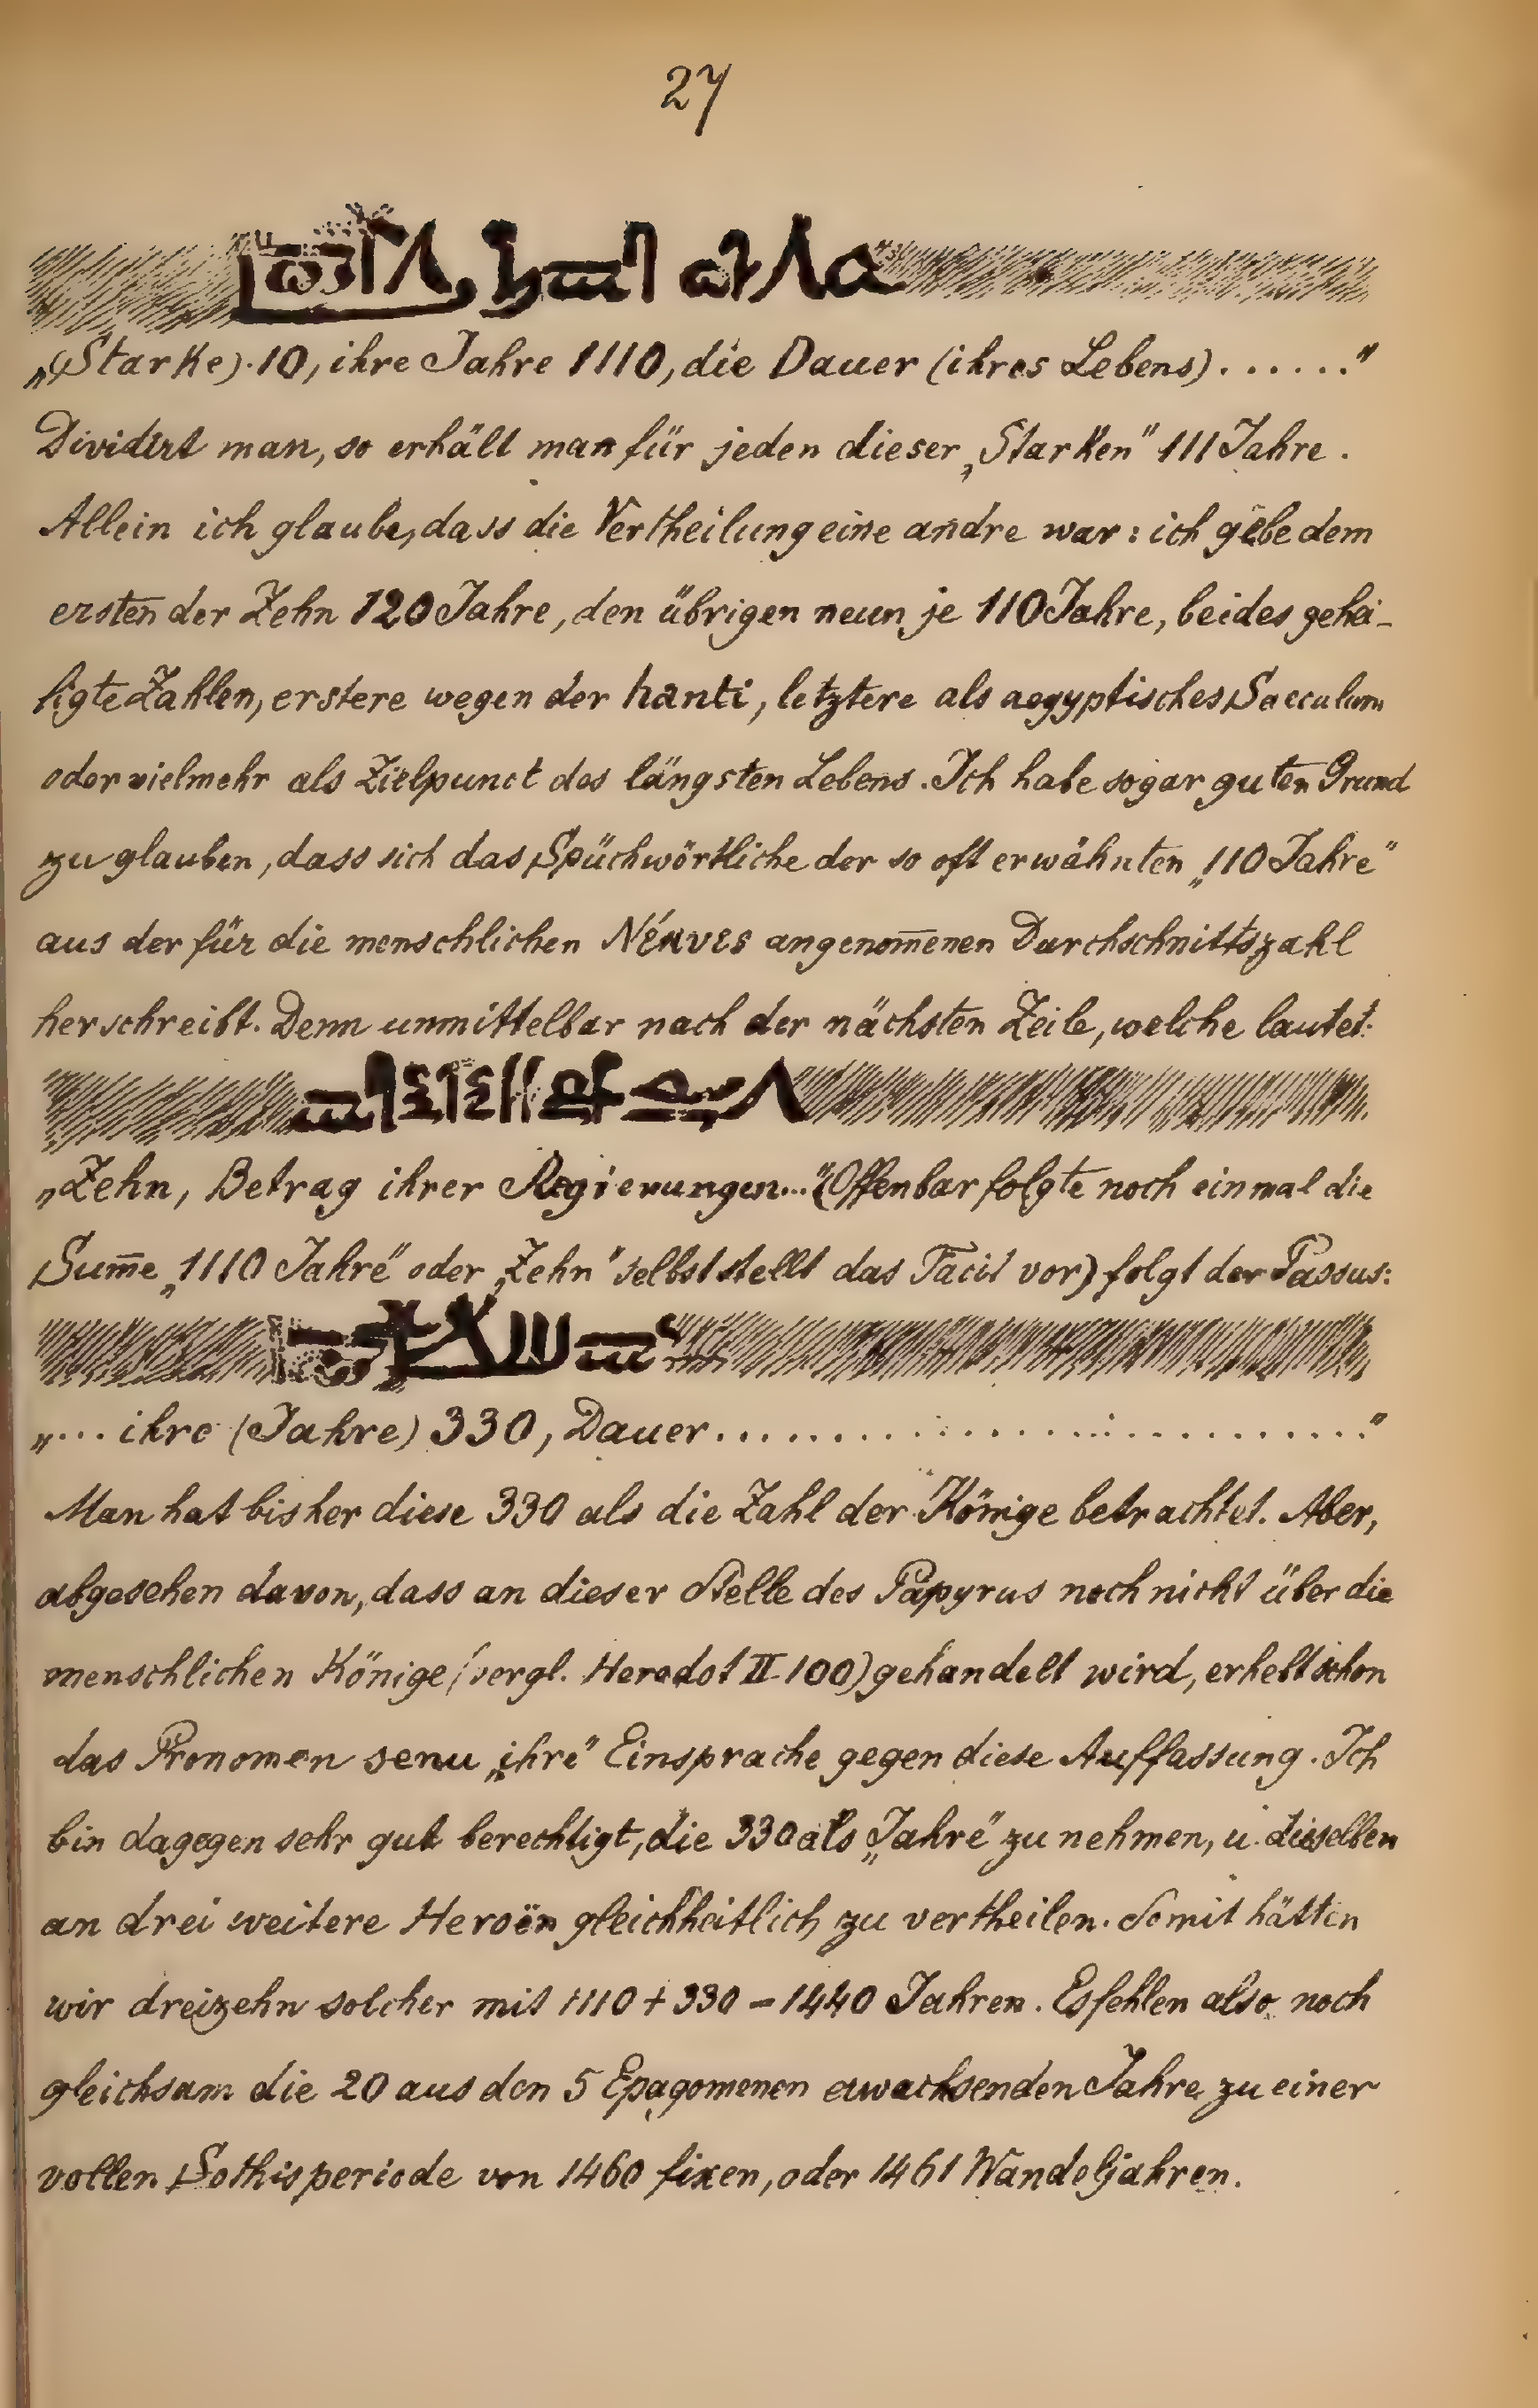 27
„(Starke). 10, ihre Jahre 1110, die Dauer (ihres Lebens)......“
Dividirt man, so erhält man für jeden dieser „Starken“ 111 Jahre.
Allein ich glaube, dass die Vertheilung eine andre war: ich gebe dem
ersten der Zehn 120 Jahre, den übrigen neun je 110 Jahre, beides gehei-
ligte Zahlen, erstere wegen der hanti, letztere als aegyptisches Saeculum
oder vielmehr als Zielpunct des längsten Lebens. Ich habe sogar guten Grund
zu glauben, dass sich das Spüchwörtliche der so oft erwähnten „110 Jahre“
aus der für die menschlichen Νέκυες angenom̅enen Durchschnittszahl
herschreibt. Denn unmittelbar nach der nächsten Zeile, welche lautet:
„Zehn, Betrag ihrer Regierungen...“ (Offenbar folgte noch einmal die
Sum̅e „1110 Jahre“ oder „Zehn“ selbst stellt das Facit vor) folgt der Passus:
„... ihre (Jahre) 330, Dauer..............................“
Man hat bisher diese 330 als die Zahl der Könige betrachtet. Aber,
abgesehen davon, dass an dieser Stelle des Papyrus noch nicht über die
menschlichen Könige (vergl. Herodot II 100) gehandelt wird, erhebt schon
das Pronomen senu „ihre“ Einsprache gegen diese Auffassung. Ich
bin dagegen sehr gut berechtigt, die 330 als „Jahre“ zu nehmen, u. dieselben
an drei weitere Heroën gleichheitlich zu vertheilen. Somit hätten
wir dreizehn solcher mit 1110 + 330 = 1440 Jahren. Es fehlen also noch
gleichsam die 20 aus den 5 Epagomenen erwachsenden Jahre zu einer
vollen Sothisperiode von 1460 fixen, oder 1461 Wandeljahren.